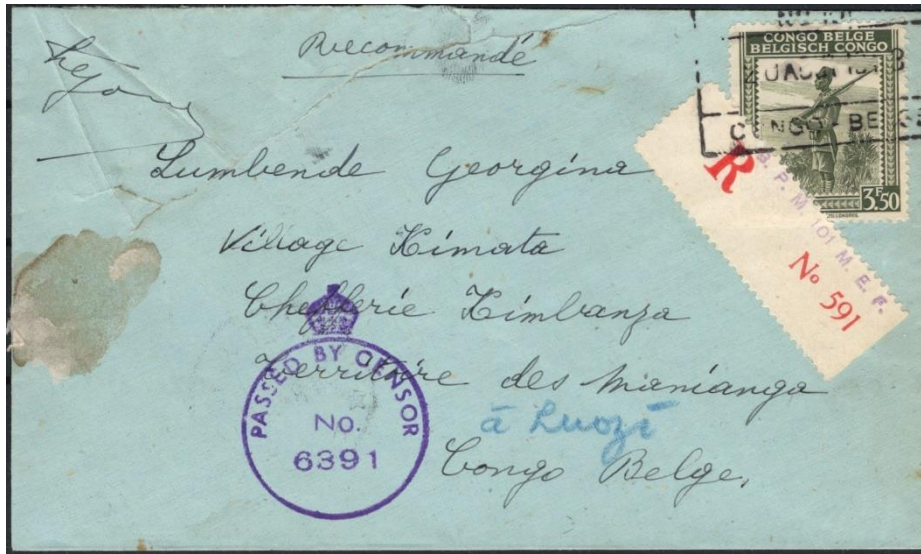 Recommandé
CONGO BELGE
BELGISCH CONGO
3F50
R
B. P. M. 101 M. E. F.
No 591
Lumbende Georgina
Village Kimata
Chefferie Kimbanza
Territoire des Manianga
à Luozi
Congo Belge.
PASSED BY CENSOR
No.
6391